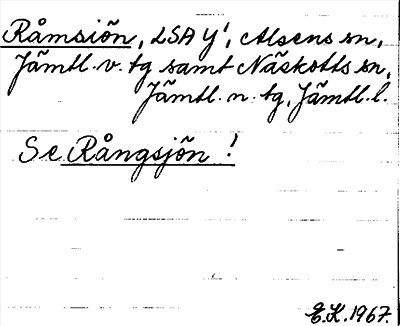 Råmsiön, LSA y', Alsens sn,
Jämtl. v. tg samt Näskotts sn,
Jämtl. n. tg, Jämtl. l.
Se Rångsjön !
E.K. 1967.